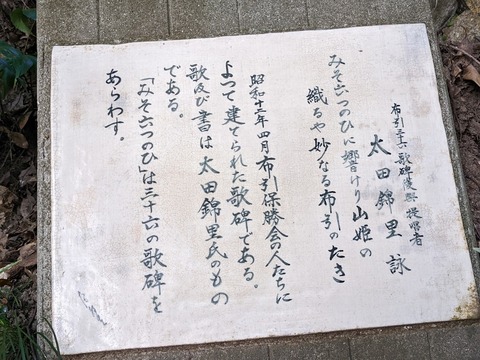 布引三十六歌碑復興提唱者
太田錦里 詠
みそ六つのひに響けり山姫の
織るや妙なる布引のたき
昭和十二年四月布引保勝会の人たちに
よつて建てられた歌碑である。
歌及び書は太田錦里氏のもの
である。
「みそ六つのひ」は三十六の歌碑を
あらわす。